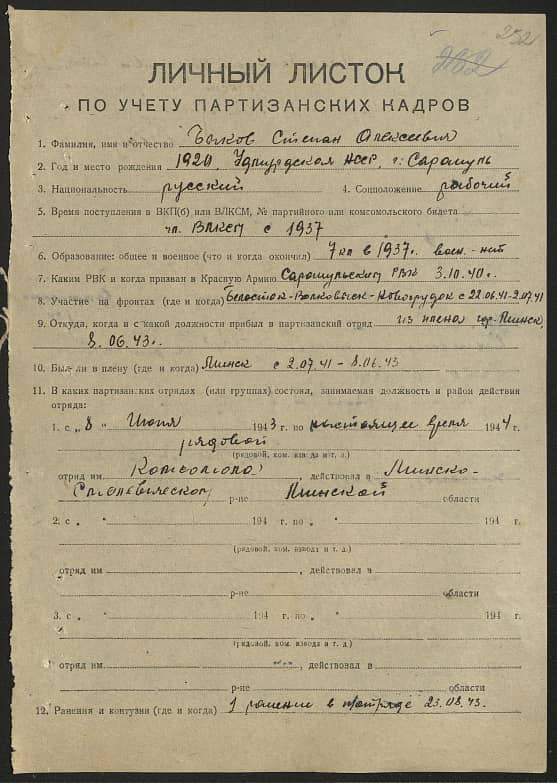 252
ЛИЧНЫЙ ЛИСТОК
ПО УЧЕТУ ПАРТИЗАНСКИХ КАДРОВ
1. Фамилия, имя и отчество Быков Степан Алексеевич
2. Год и место рождения 1920, Удмурдская АССР, г. Сарапуль
3. Национальность русский 4. Соцположение рабочий
5. Время поступления в ВКП(б) или ВЛКСМ, № партийного или комсомольского билета
чл. ВЛКСМ с 1937
6. Образование: общее и военное (что и когда окончил) 7 кл в 1937г. воен.-нит
7. Каким РВК и когда призван в Красную Армию Сарапульским РВК 3.10.40г.
8. Участие на фронтах (где и когда) Белосток-Волковыск-Новогрудок с 22.06.41-2.07.41
9. Откуда, когда и с какой должности прибыл в партизанский отряд из плена гор. Минск,
8.06.43г.
10. Был ли в плену (где и когда) Минск с 2.07.41 - 8.06.43
11. В каких партизанских отрядах (или группах) состоял, занимаемая должность и район действия
отряда:
1. с „8" Июня 1943 г. по настоящее время 1944 г.
рядовой
(рядовой, ком. взвода и т. д.)
отряд им Комсомола, действовал в Минско-
Смолевическом р-не Минской области
2. с „ " 194 г. по „ " 194 г.
(рядовой, ком. взвода и т. д.)
отряд им , действовал в
р-не области
3. с „ " 194 г. по „ " 194 г.
(рядовой, ком. взвода и т. д.)
отряд им , действовал в
р-не области
12. Ранения и контузии (где и когда) 1 ранение в п/отряде 23.08.43.